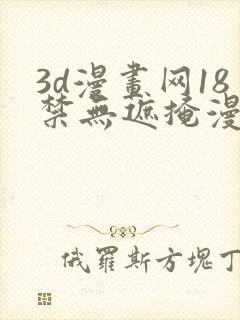 3d漫畫网18
禁無遮掩漫
俄羅斯方塊丁